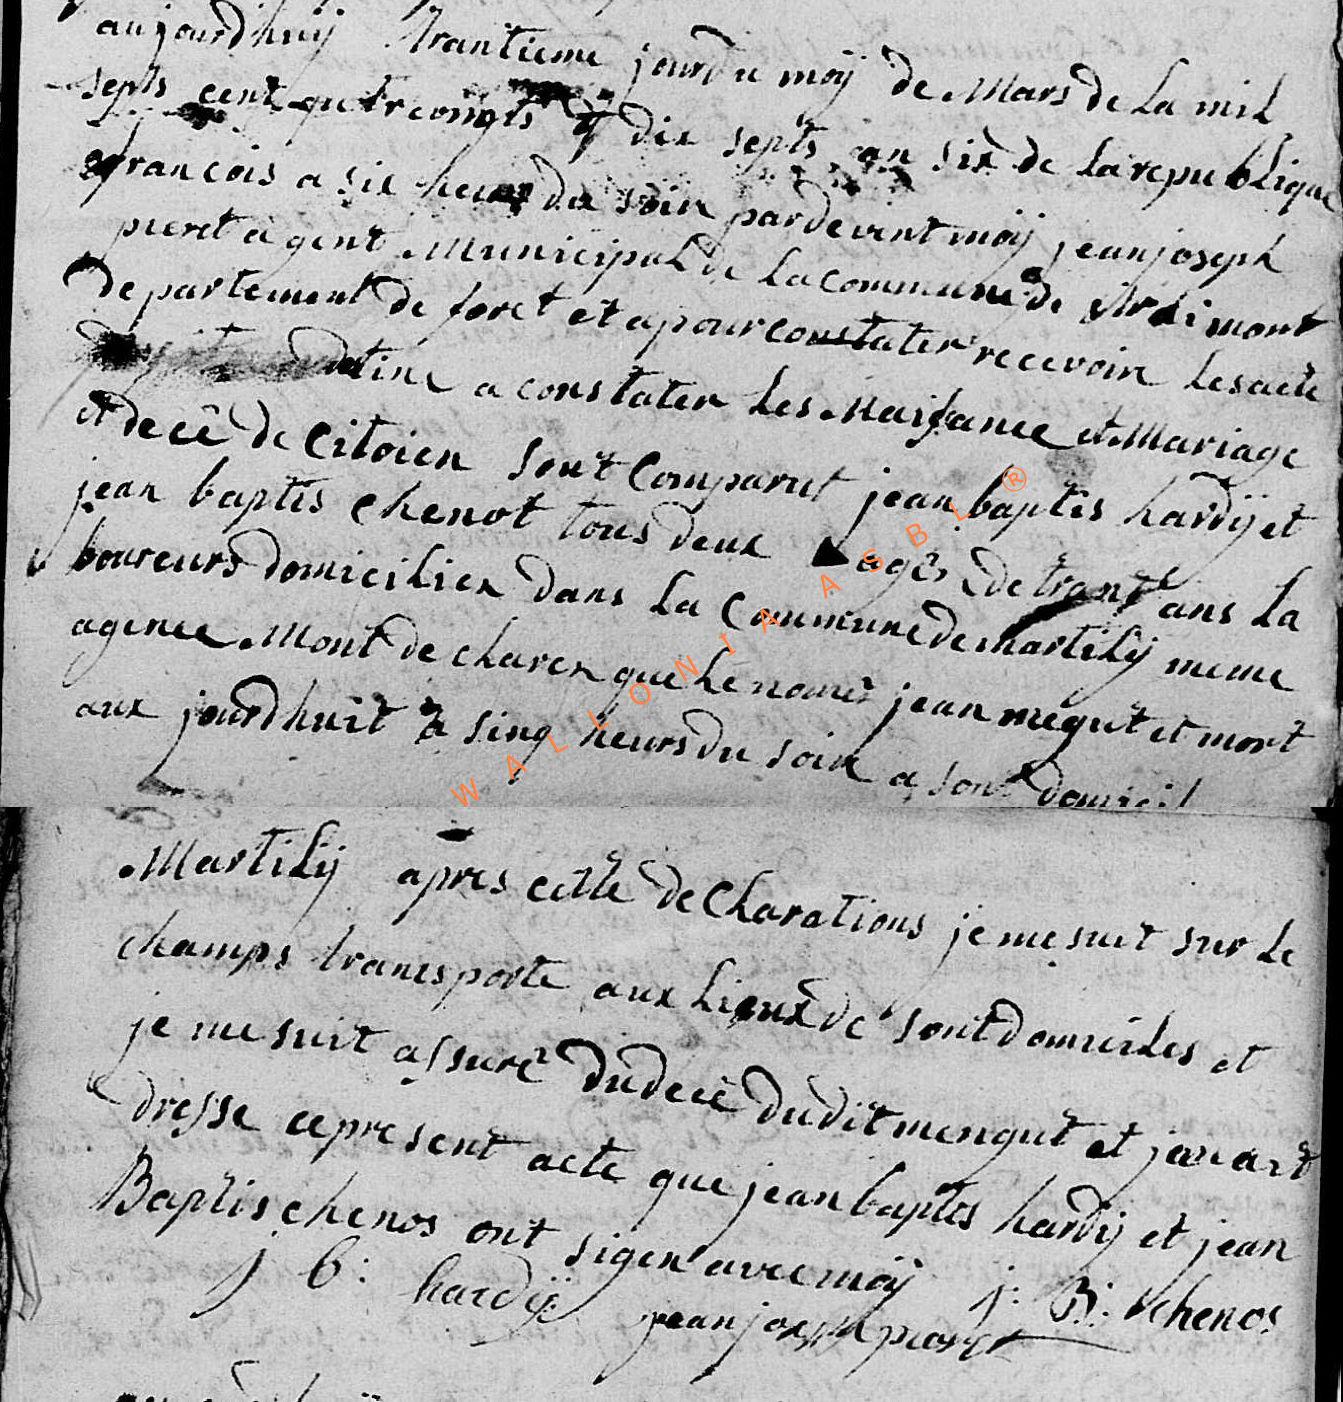 aujourdhuij trantieme jour du moij de Mars de La mil
septs cent quatrevingts & dix septs an six de La republique
francois a six heurs du soir pardevent moij jeanjoseph
pieret agent Municipal de La commune de
departement de foret et a pour constater recevoir Lesacte
detine a constater Les Naissance et Mariage
et decê de Citoien sont Comparut jean baptis hardij et
jean baptis chenot tous deux ages de trant ans La
boureurs domicilier dans La Commune de Martilij meme
agence Mont de charer que Le nomê jean megut et mort
aux jourdhuit a sinq heurs du soir a sont domicil
Martilij apres cette deCharations je me suit sur Le
champs transporte aux Lieux de sont domiciles et
je me suit assurê dudecê dudit mengut et
dresse cepresent acte que jean baptis hardij et jean
Baptis chenos ont sigen avec moij j: B: chenos
j: b: hardij
jean joseph pieret
WALLONIA ASBL ®